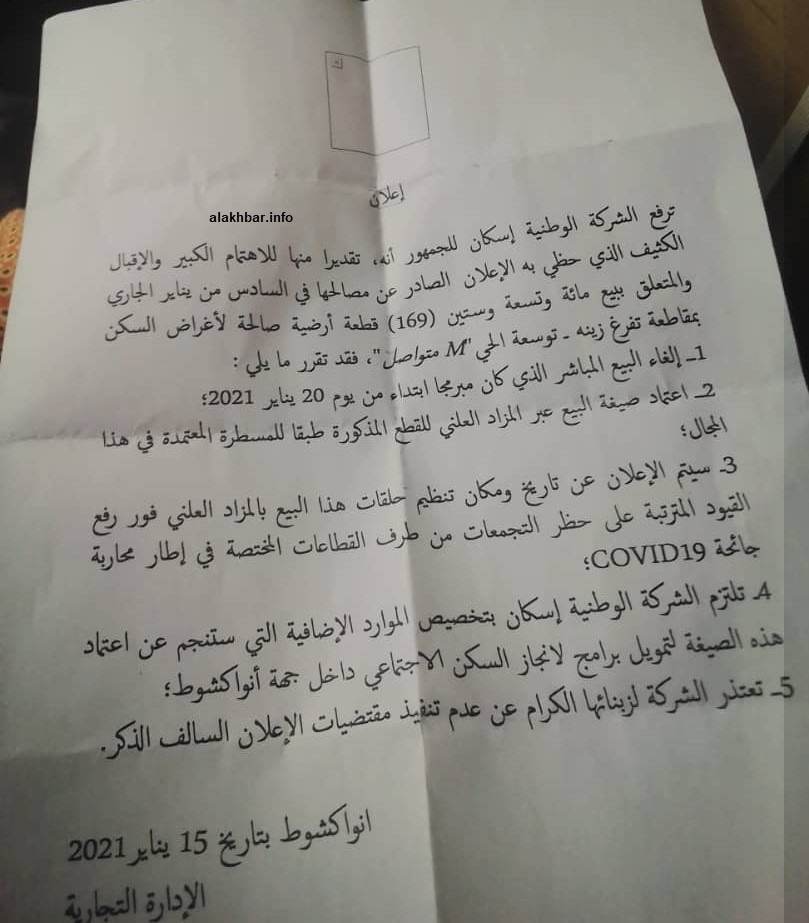 إعلان
alakhbar.info
ترفع الشركة الوطنية إسكان للجمهور أنه، تقديرا منها للاهتمام الكبير والإقبال
الكثيف الذي حظي به الإعلان الصادر عن مصالحها في السادس من يناير الجاري
والمتعلق ببيع مائة وتسعة وستين (169) قطعة أرضية صالحة لأغراض السكن
بمقاطعة تفرغ زينه ـ توسعة الحي "M متواصل"، فقد تقرر ما يلي :
1ـ إلغاء البيع المباشر الذي كان مبرمجا ابتداء من يوم 20 يناير 2021؛
2ـ اعتماد صيغة البيع عبر المزاد العلني للقطع المذكورة طبقا للمسطرة المعتمدة في هذا
المجال؛
3ـ سيتم الإعلان عن تاريخ ومكان تنظيم حلقات هذا البيع بالمزاد العلني فور رفع
القيود المترتبة على حظر التجمعات من طرف القطاعات المختصة في إطار محاربة
جائحة COVID19؛
4ـ تلتزم الشركة الوطنية إسكان بتخصيص الموارد الإضافية التي ستنجم عن اعتماد
هذه الصيغة لتمويل برامج لانجاز السكن الاجتماعي داخل جهة أنواكشوط؛
5ـ تعتذر الشركة لزبنائها الكرام عن عدم تنفيذ مقتضيات الإعلان السالف الذكر.
انواكشوط بتاريخ 15 يناير 2021
الإدارة التجارية